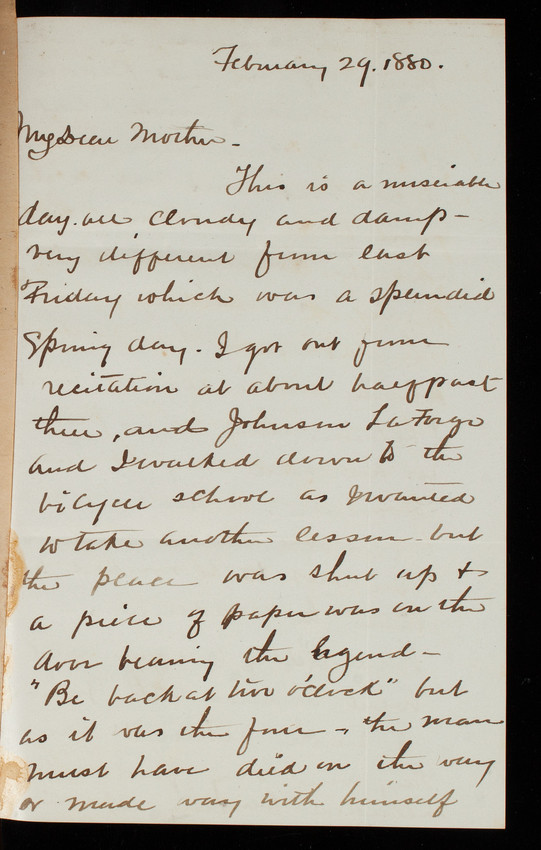 February 29. 1880.
My Dear Mother -
This is a miserable
day. all cloudy and damp -
very different from last
Friday which was a splendid
Spring day. I got out from
recitation at about half past
three, and Johnson LaForge
and I walked down to the
bicycle school as I wanted
to take another lesson - but
the place was shut up &
a piece of paper was on the
door bearing the legend -
"Be back at two o'clock" but
as it was the four - the man
must have died on the way
or made way with himself